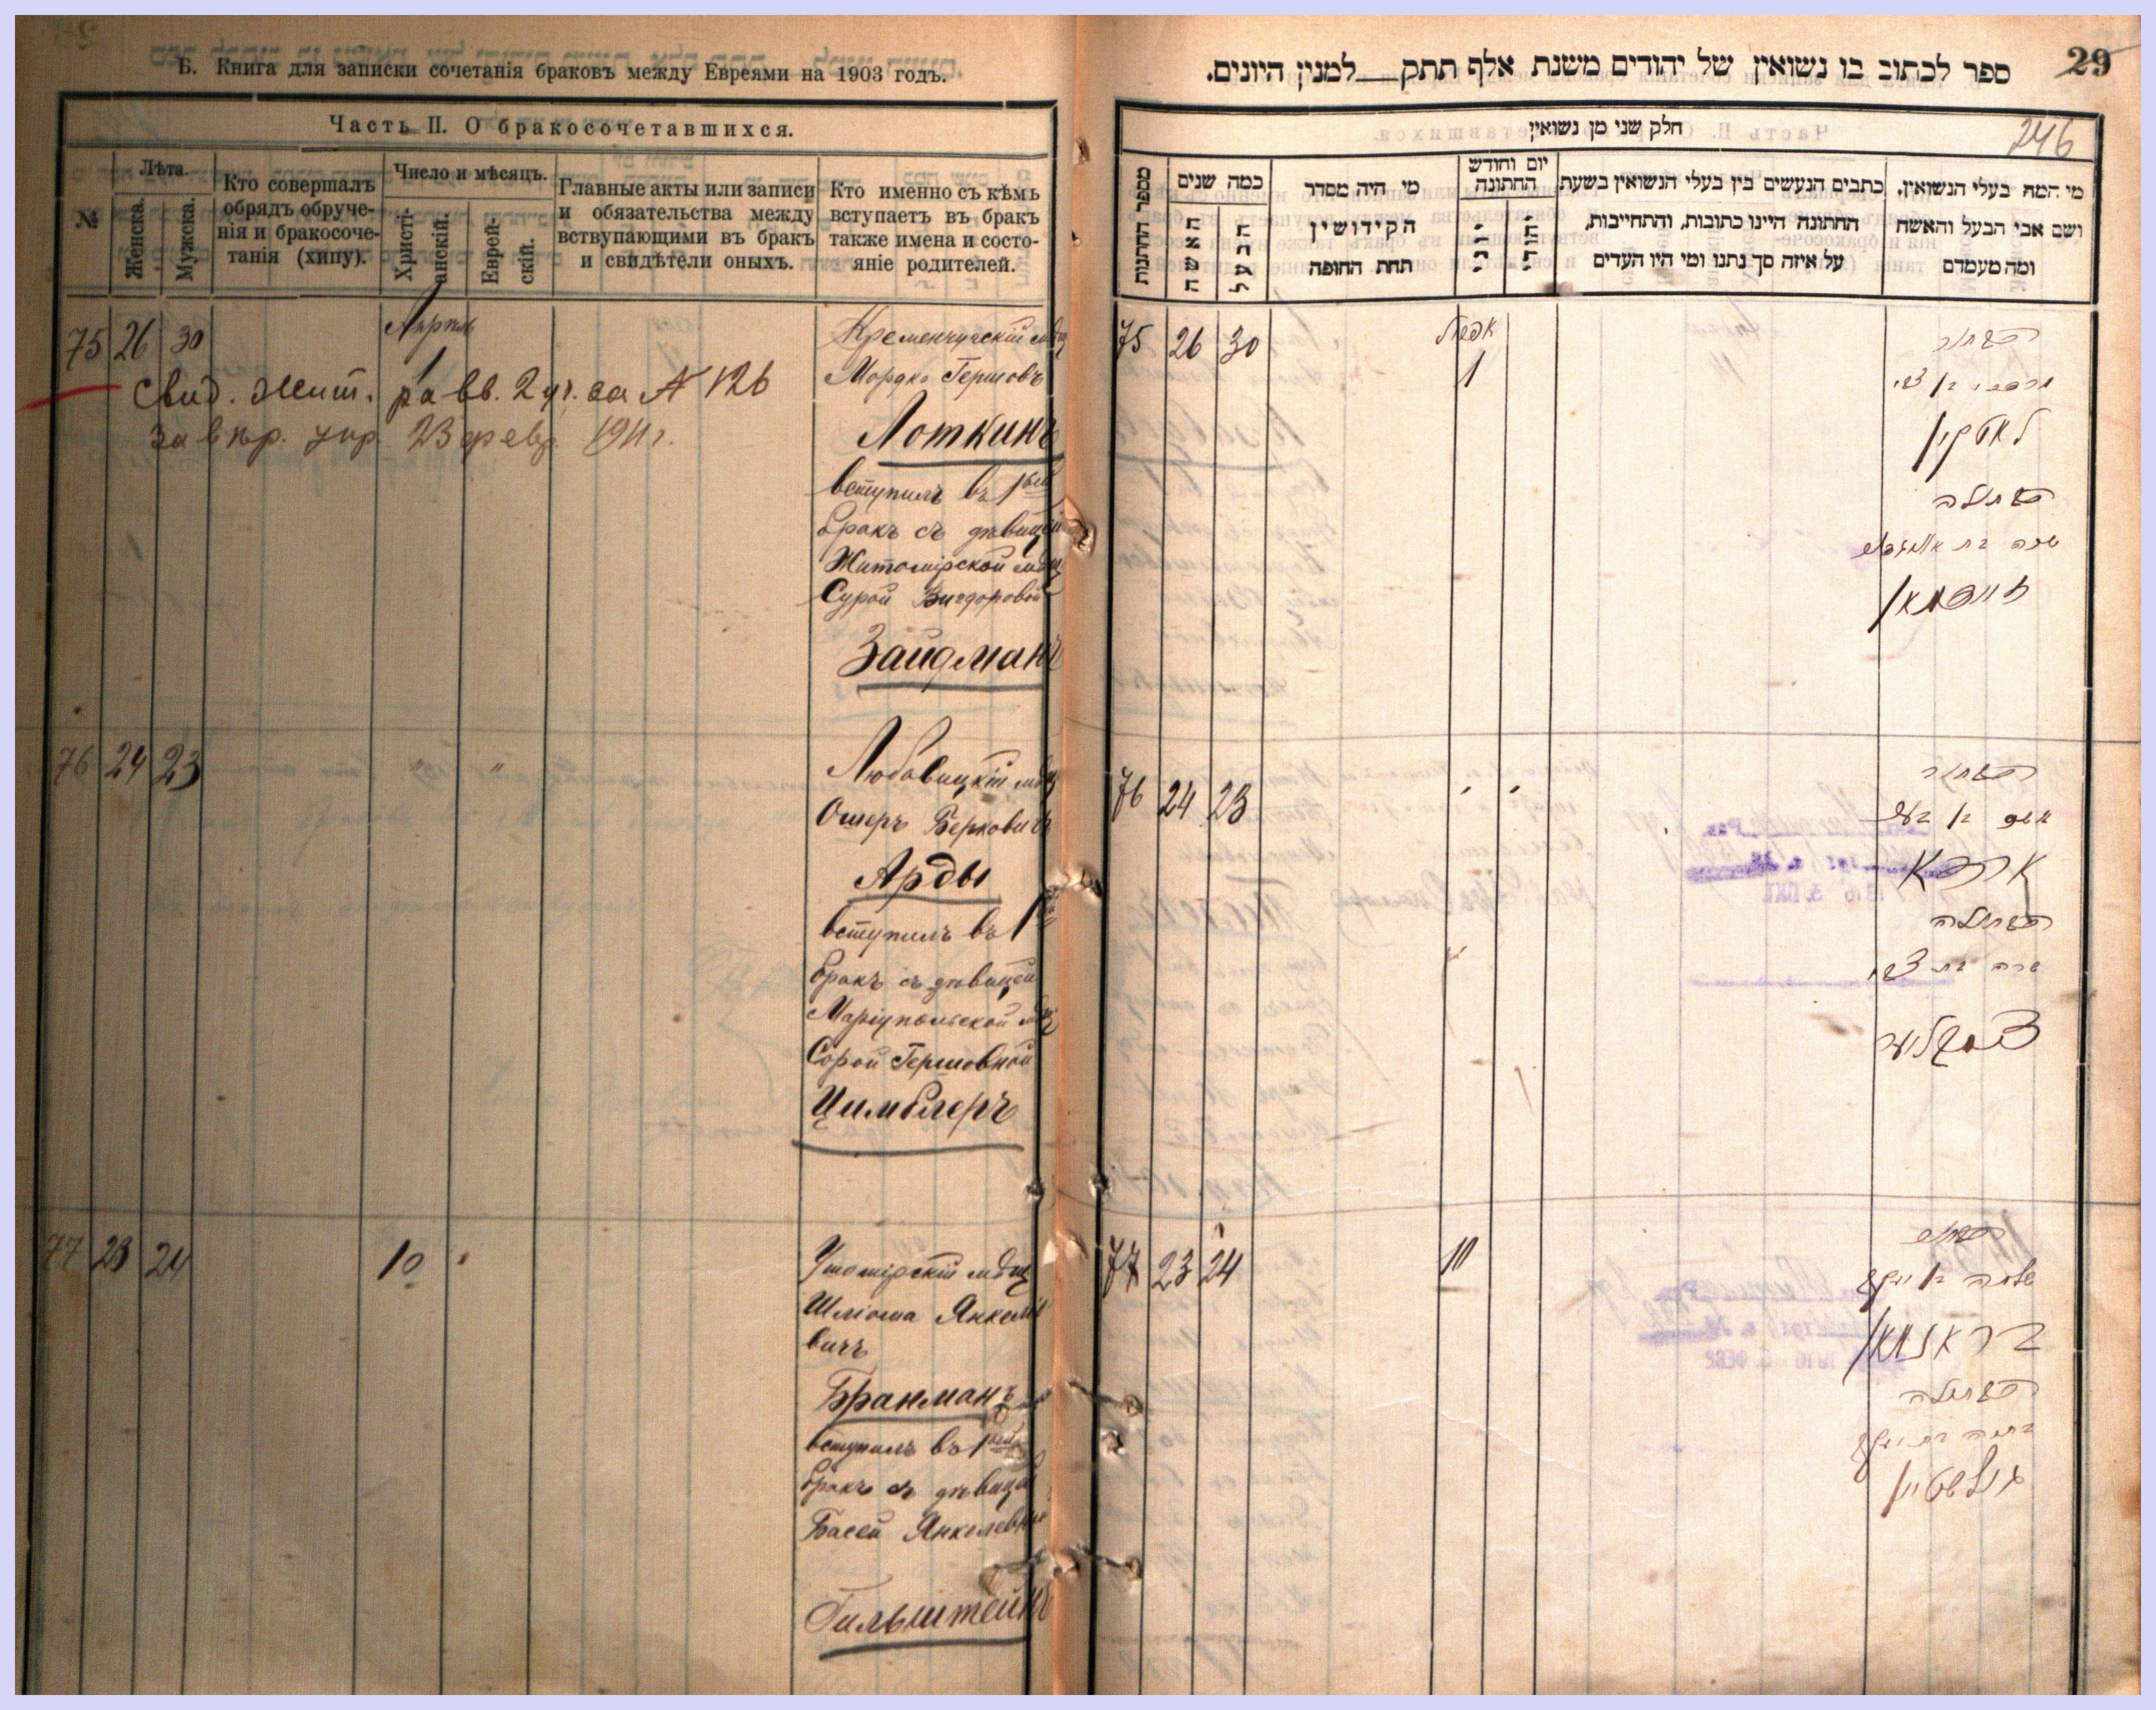 Б. Книга для записки сочетанія браковъ между Евреями на 1903 годъ.
Часть II. О бракосочетавшихся.
№
Лѣта.
Женска.
Мужска.
Кто совершалъ
обрядъ обруче-
нія и бракосоче-
танія (хипу).
Число и мѣсяцъ.
Христі-
анскій.
Еврей-
скій.
Главные акты или записи
и обязательства между
вступающими въ бракъ
и свидѣтели оныхъ.
Кто именно съ кѣмъ
вступаетъ въ бракъ
также имена и состо-
яніе родителей.
75 26 30
1
Апрѣль
Кременчугскій мѣщ
Мордко Гершовъ
Свид. Жит. рав. 2 уч. за № 126
23 февр. 1911 г.
Лоткинъ
вступилъ въ 1ый
бракъ съ дѣвицей
Житомірской мѣщ
Сурой Вигдоровой
Зайдманъ
76 24 23 " "
Любавицкій мѣщ
Ошеръ Берковичъ
Арды
вступилъ въ 1
бракъ съ дѣвицей
Маріупольской мѣщ
Сорой Гершовной
Цимблеръ
77 23 24 10 "
Ушомірскій мѣщ
Шліома Янкеле
вичъ
Бранманъ
вступилъ въ 1ый
бракъ съ дѣвицей
Басей Янкелевной
Гильштейнъ
29
ספר לכתוב בו נשואין של יהודים משנת אלף תתק למנין היונים.
246
חלק שני מן נשואין
מספר החתונות
כמה שנים
האשה
הבעל
מי היה מסדר
הקידושין
תחת החופה
יום וחודש
החתונה
יוני
יהודי
כתבים הנעשים בין בעלי הנשואין בשעת
החתונה היינו כתובות, והתחייבות,
על איזה סך נתנו ומי היו העדים
מי המה בעלי הנשואין,
ושם אבי הבעל והאשה
ומה מעמדם
75 26 30
אפריל
1
הבחור
מרדכי בן צבי
לאטקין
הבתולה
שרה בת אביגדור
זיידמאן
76 24 23
הבחור
אשר בן בער
ארדא
הבתולה
שרה בת צבי
צימבלער
77 23 24
10
הבחור
שלמה בן יעקב
בראנמאן
הבתולה
בתיה בת יעקב
גילשטיין